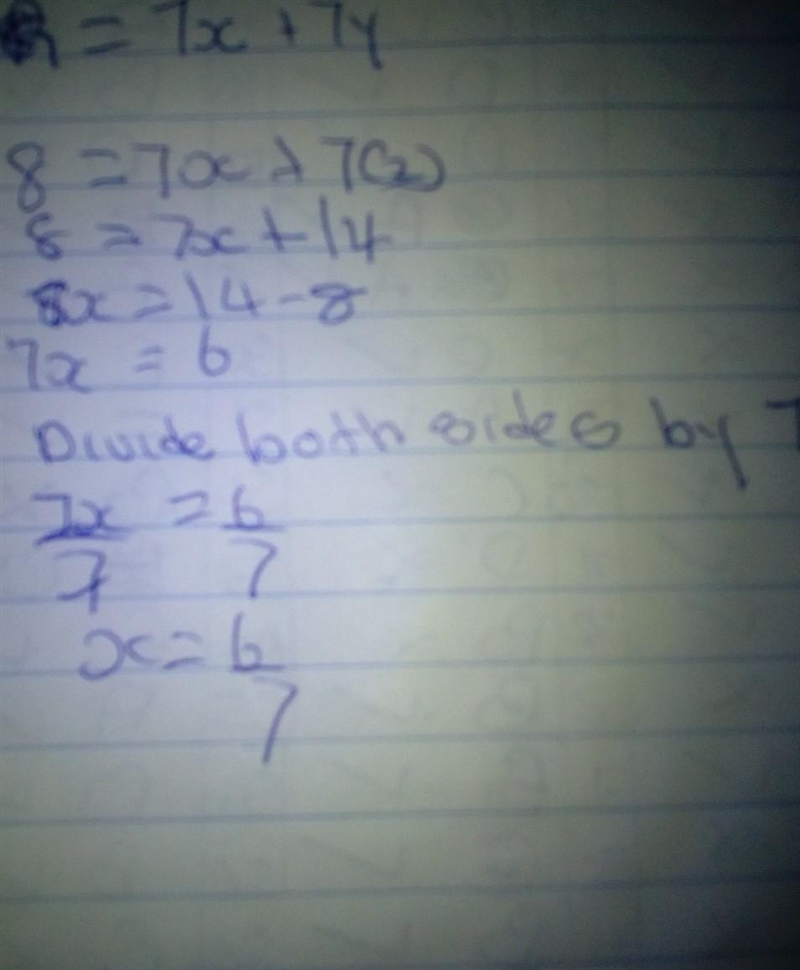 = 7x + 7y
8 = 7x + 7(2)
8 = 7x + 14
x = 14 - 8
7x = 6
Divide both sides by 7
7x/7 = 6/7
x = 6/7